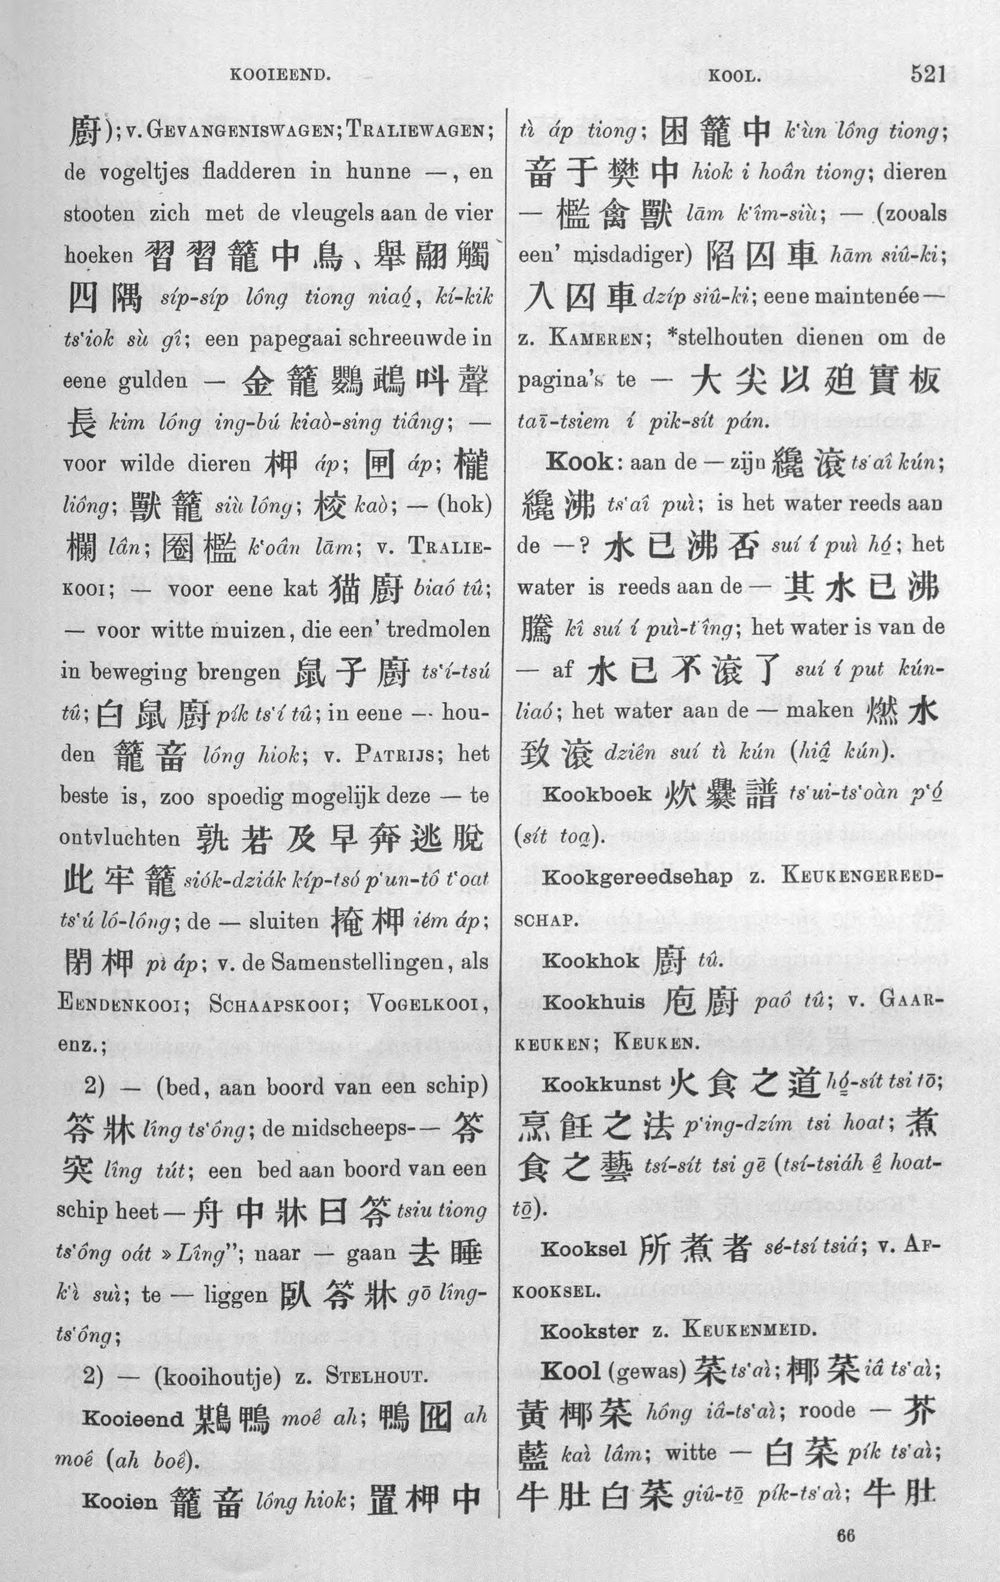 KOOIEEND.
KOOL.
521
廚); v. GEVANGENISWAGEN; TRALIEWAGEN;
de vogeltjes fladderen in hunne —, en
stooten zich met de vleugels aan de vier
hoeken 習習籠中鳥、舉翮觸
四隅 síp-síp lông tiong niaó, kí-kik
ts‘iok sù gî; een papegaai schreeuwde in
eene gulden — 金籠鸚鵡叫聲
長 kim lóng ing-bú kiaò-sing tiâng; —
voor wilde dieren 柙 áp; 匣 áp; 櫳
liông; 獸籠 siù lông; 校 kaò; — (hok)
欄 lân; 圈檻 k‘oân lãm; v. TRALIE-
KOOI; — voor eene kat 猫廚 biaó tû;
— voor witte muizen, die een’ tredmolen
in beweging brengen 鼠子廚 ts‘í-tsú
tû; 白鼠廚 pík ts‘í tû; in eene — hou-
den 籠畜 lông hiok; v. PATRIJS; het
beste is, zoo spoedig mogelijk deze — te
ontvluchten 孰若及早奔逃脫
此牢籠 siók-dziák kíp-tsó p‘un-tô t‘oat
ts‘ú ló-lông; de — sluiten 掩柙 iém áp;
閉柙 pì áp; v. de Samenstellingen, als
EENDENKOOI; SCHAAPSKOOI; VOGELKOOI,
enz.;
2) — (bed, aan boord van een schip)
笭牀 lîng ts‘ông; de midscheeps-— 笭
突 lîng tút; een bed aan boord van een
schip heet — 舟中牀曰笭 tsiu tiong
ts‘ông oát »Lîng”; naar — gaan 去睡
k‘ì suì; te — liggen 臥笭牀 gō lîng-
ts‘ông;
2) — (kooihoutje) z. STELHOUT.
Kooieend 鴨 moê ah; 鴨囮 ah
moê (ah boê).
Kooien 籠畜 lông hiok; 置柙中
tì áp tiong; 困籠中 k‘ùn lông tiong;
畜于樊中 hiok i hoân tiong; dieren
— 檻禽獸 lām k‘îm-siù; — (zooals
een’ misdadiger) 陷囚車 hām siû-ki;
入囚車 dzíp siû-ki; eene maintenée —
z. KAMEREN; *stelhouten dienen om de
pagina’s te — 大尖以廹實板
taī-tsiem í pik-sít pán.
Kook: aan de — zijn 纔滾 ts‘aî kún;
纔沸 ts‘aî puì; is het water reeds aan
de —? 水已沸否 suí í puì hó; het
water is reeds aan de — 其水已沸
騰 kî suí í puì-t‘îng; het water is van de
— af 水已不滾了 suí í put kún-
liaó; het water aan de — maken 燃水
致滾 dziên suí tì kún (hiâ kún).
Kookboek 炊爨譜 ts‘ui-ts‘oàn p‘ó
(sít toa).
Kookgereedschap z. KEUKENGEREED-
SCHAP.
Kookhok 廚 tû.
Kookhuis 庖廚 paô tû; v. GAAR-
KEUKEN; KEUKEN.
Kookkunst 火食之道 hó-sít tsi tō;
烹飪之法 p‘ing-dzím tsi hoat; 煮
食之藝 tsí-sít tsi gē (tsí-tsiáh ê hoat-
tō).
Kooksel 所煮者 sé-tsí tsiá; v. AF-
KOOKSEL.
Kookster z. KEUKENMEID.
Kool (gewas) 菜 ts‘aì; 椰菜 iâ ts‘aì;
黃椰菜 hông iâ-ts‘aì; roode — 芥
藍 kaì lâm; witte — 白菜 pík ts‘aì;
牛肚白菜 giû-tō pík-ts‘aì; 牛肚
66